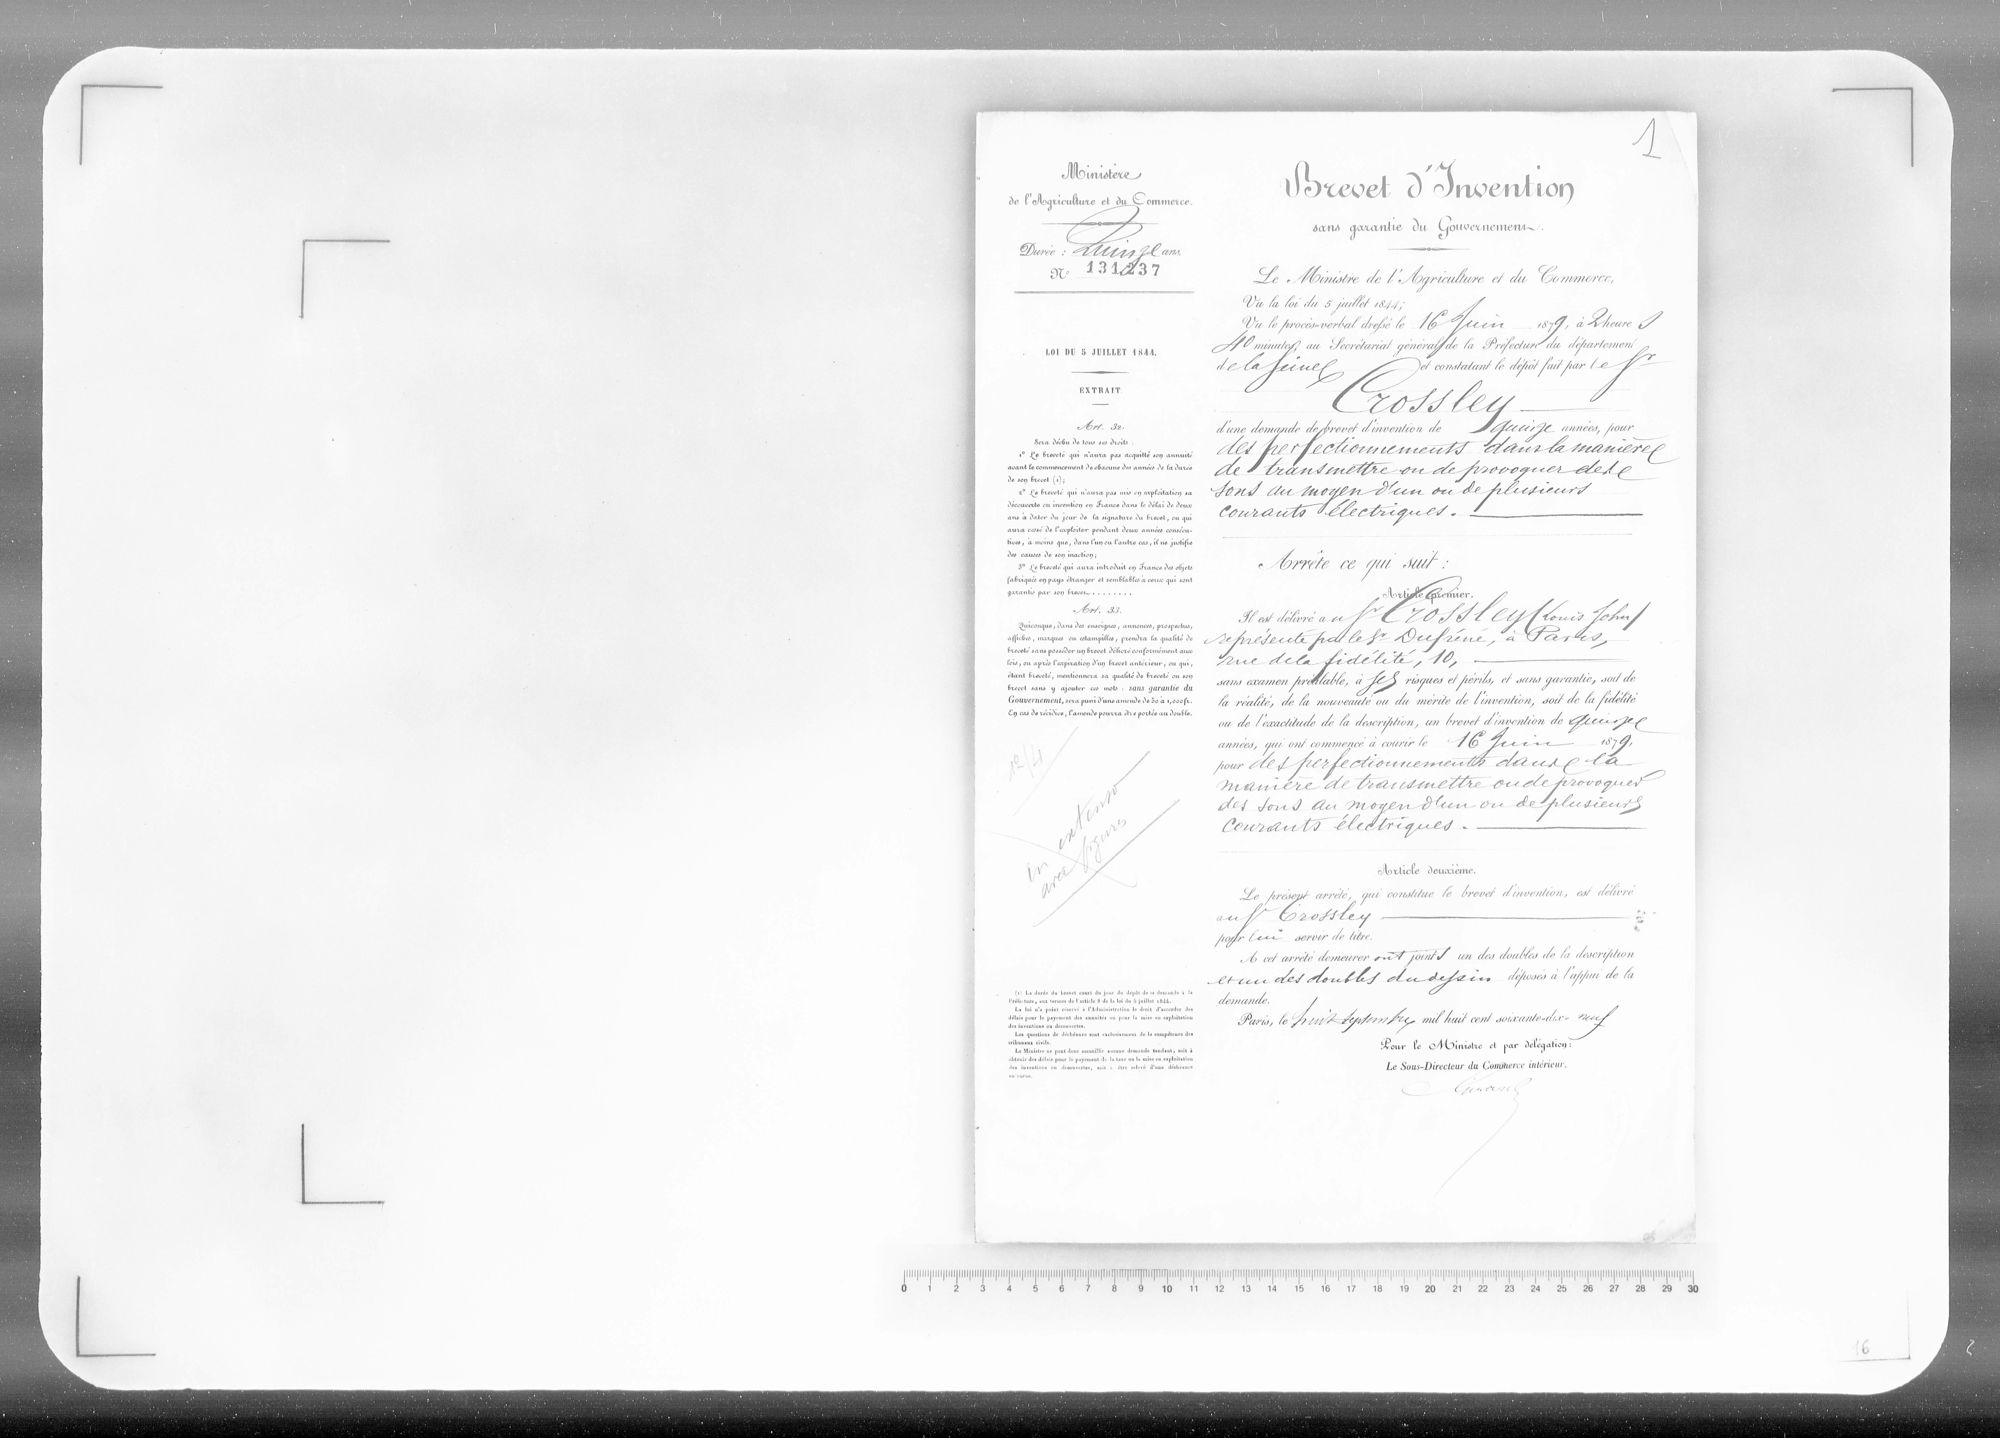 1
Ministère
de l'Agriculture et du Commerce.
Durée : Quinze ans.
N° 131,237
LOI DU 5 JUILLET 1844.
EXTRAIT
Art. 32.
Sera déchu de tous ses droits :
1° Le breveté qui n'aura pas acquitté son annuité
avant le commencement de chacune des années de la durée
de son brevet (1);
2° Le breveté qui n'aura pas mis en exploitation sa
découverte ou invention en France dans le délai de deux
ans à dater du jour de la signature du brevet, ou qui
aura cessé de l'exploiter pendant deux années consécu-
tives, à moins que, dans l'un ou l'autre cas, il ne justifie
des causes de son inaction;
3° Le breveté qui aura introduit en France des objets
fabriqués en pays étranger et semblables à ceux qui sont
garantis par son brevet.........
Art. 33.
Quiconque, dans des enseignes, annonces, prospectus,
affiches, marques ou estampilles, prendra la qualité de
breveté sans posséder un brevet délivré conformément aux
lois, ou après l'expiration d'un brevet antérieur, ou qui,
étant breveté, mentionnera sa qualité de breveté ou son
brevet sans y ajouter ces mots : sans garantie du
Gouvernement, sera puni d'une amende de 50 à 1,000 fr.
En cas de récidive, l'amende pourra être portée au double.
12/4
In extenso
avec figures
(1) La durée du brevet court du jour du dépôt de la demande à la
Préfecture, aux termes de l'article 8 de la loi du 5 juillet 1844.
La loi n'a point réservé à l'Administration le droit d'accorder des
délais pour le payement des annuités ou pour la mise en exploitation
des inventions ou découvertes.
Les questions de déchéance sont exclusivement de la compétence des
tribunaux civils.
Le Ministre ne peut donc accueillir aucune demande tendant, soit à
obtenir des délais pour le payement de la taxe ou la mise en exploitation
des inventions ou découvertes, soit à être relevé d'une déchéance
encourue.
Brevet d'Invention
sans garantie du Gouvernement.
Le Ministre de l'Agriculture et du Commerce,
Vu la loi du 5 juillet 1844;
Vu le procès-verbal dressé le 16 Juin 1879, à 2 heures
40 minutes, au Secrétariat général de la Préfecture du département
de la Seine et constatant le dépôt fait par le Sr
Crossley
d'une demande de brevet d'invention de quinze années, pour
des perfectionnements dans la manière
de transmettre ou de provoquer des
sons au moyen d'un ou de plusieurs
courants électriques.
Arrête ce qui suit :
Article premier.
Il est délivré au Sr Crossley (Louis John)
représenté par le Sr Dufréné, à Paris,
rue de la fidélité, 10,
sans examen préalable, à ses risques et périls, et sans garantie, soit de
la réalité, de la nouveauté ou du mérite de l'invention, soit de la fidélité
ou de l'exactitude de la description, un brevet d'invention de quinze
années, qui ont commencé à courir le 16 Juin 1879,
pour des perfectionnements dans la
manière de transmettre ou de provoquer
des sons au moyen d'un ou de plusieurs
courants électriques.
Article deuxième.
Le présent arrêté, qui constitue le brevet d'invention, est délivré
au Sr Crossley
pour lui servir de titre.
A cet arrêté demeurer ont joints un des doubles de la description
et un des doubles du dessin déposés à l'appui de la
demande.
Paris, le huit septembre mil huit cent soixante-dix-neuf
Pour le Ministre et par délégation:
Le Sous-Directeur du Commerce intérieur.
0 1 2 3 4 5 6 7 8 9 10 11 12 13 14 15 16 17 18 19 20 21 22 23 24 25 26 27 28 29 30
16